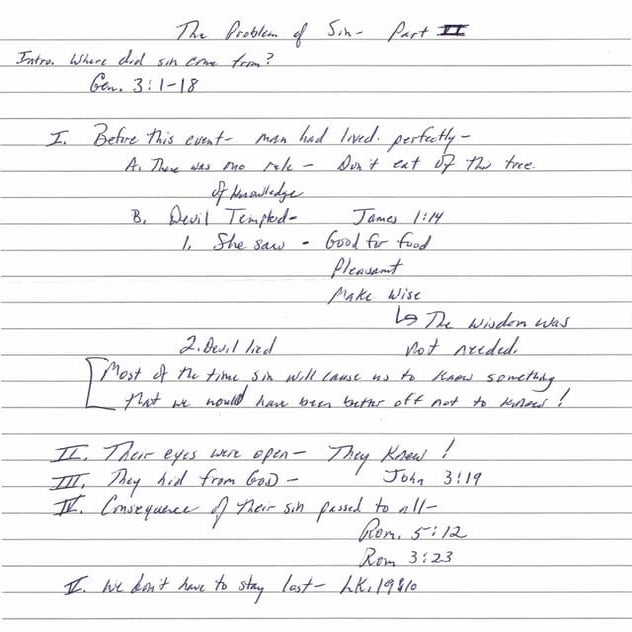 The Problem of Sin - Part II
Intro. Where did sin come from?
Gen. 3:1-18
I. Before this event - man had lived perfectly -
A. There was one rule - Don't eat of the tree
of knowledge
B. Devil Tempted - James 1:14
1. She saw - Good for food
Pleasant
Make wise
↳ The wisdom was
2. Devil lied not needed.
[Most of the time sin will cause us to know something
that we would have been better off not to know!
II. Their eyes were open - They Knew!
III. They hid from God - John 3:19
IV. Consequence of their sin passed to all -
Rom. 5:12
Rom 3:23
V. We don't have to stay lost - LK. 19:10